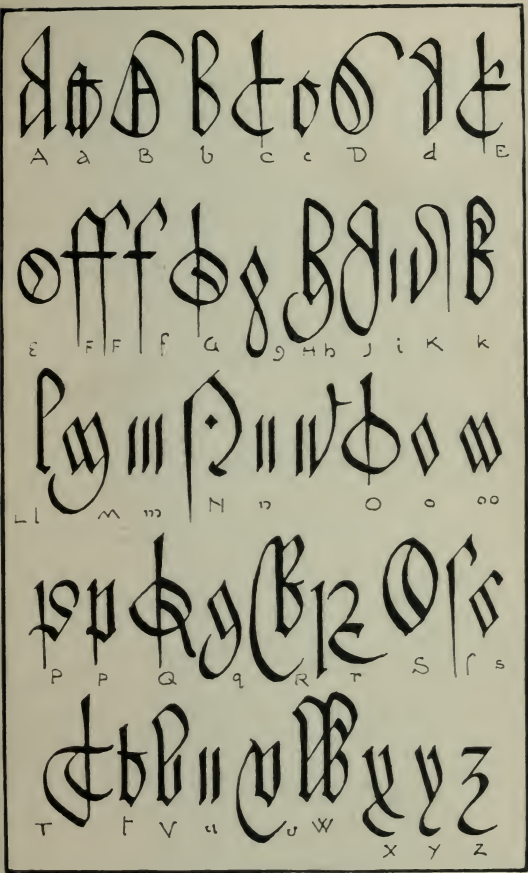 A a B b C c D d E
ε F F f G g H h J i K k
L l M m N n O o oo
P p Q q R r S ſ s
T t V u u W
X Y Z